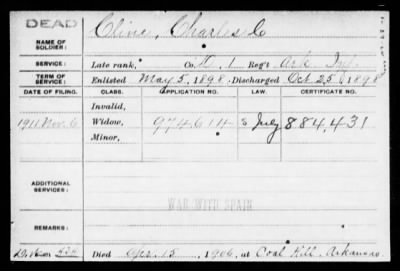 DEAD
NAME OF SOLDIER: Cline, Charles C
SERVICE: Late rank, Co. 1 Reg't Ark Inf.
TERM OF SERVICE: Enlisted May 5, 1898 Discharged Oct. 25, 1898
DATE OF FILING. CLASS. APPLICATION NO. LAW. CERTIFICATE NO.
Invalid,
1911 Nov. 6 Widow, 974614 July 884,431
Minor,
ADDITIONAL SERVICES:
WAR WITH SPAIN
REMARKS:
Died Apr. 15, 1906, at Coal Hill, Arkansas